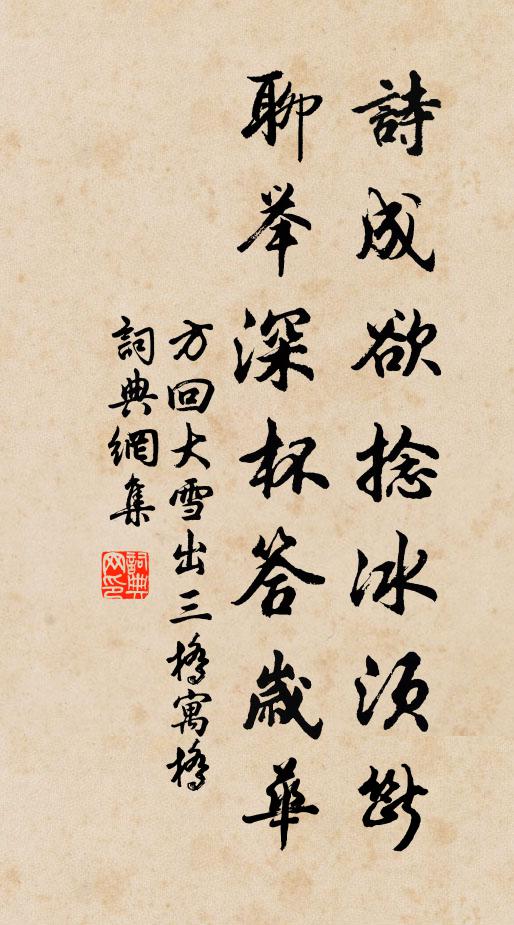 詩成欲捻冰須斷
聊举深杯答歲華
方回大雪出三橋寓橋
詞典網集
詞典網印